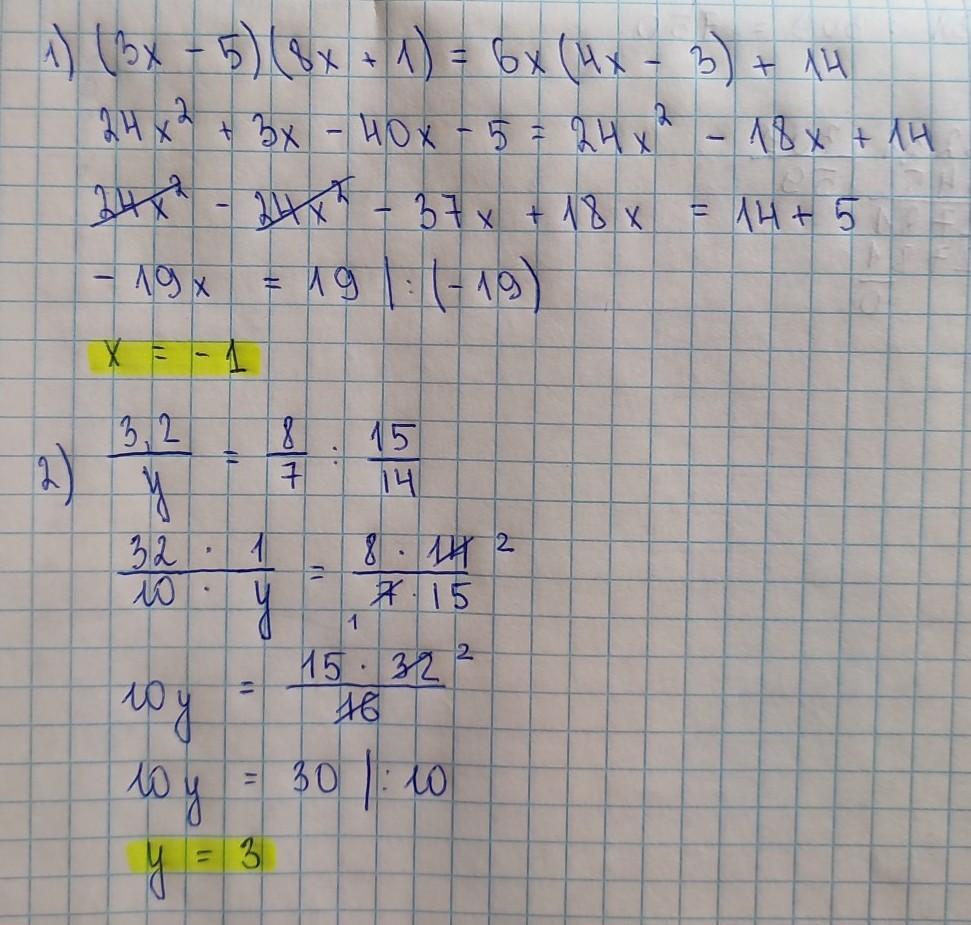 1) (3x - 5)(8x + 1) = 6x(4x - 3) + 14
24x² + 3x - 40x - 5 = 24x² - 18x + 14
24x² - 24x² - 37x + 18x = 14 + 5
- 19x = 19 |:(-19)
x = - 1
2) 3,2/y = 8/7 : 15/14
32 · 1/10 · y = 8 · 14 2/7 1 · 15
10y = 15 · 32 2/16
10y = 30 |: 10
y = 3